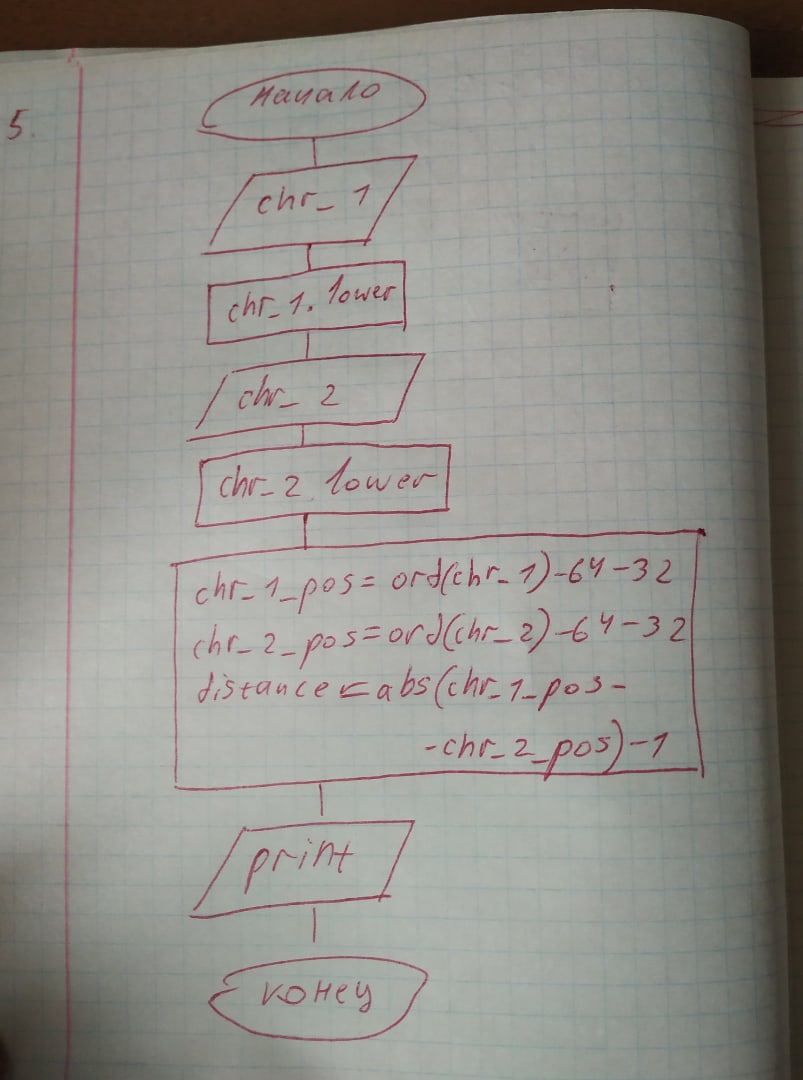 5.
начало
chr_1
chr_1.lower
chr_2
chr_2.lower
chr_1_pos = ord(chr_1)-64-32
chr_2_pos = ord(chr_2)-64-32
distance = abs(chr_1_pos-
-chr_2_pos)-1
print
конец